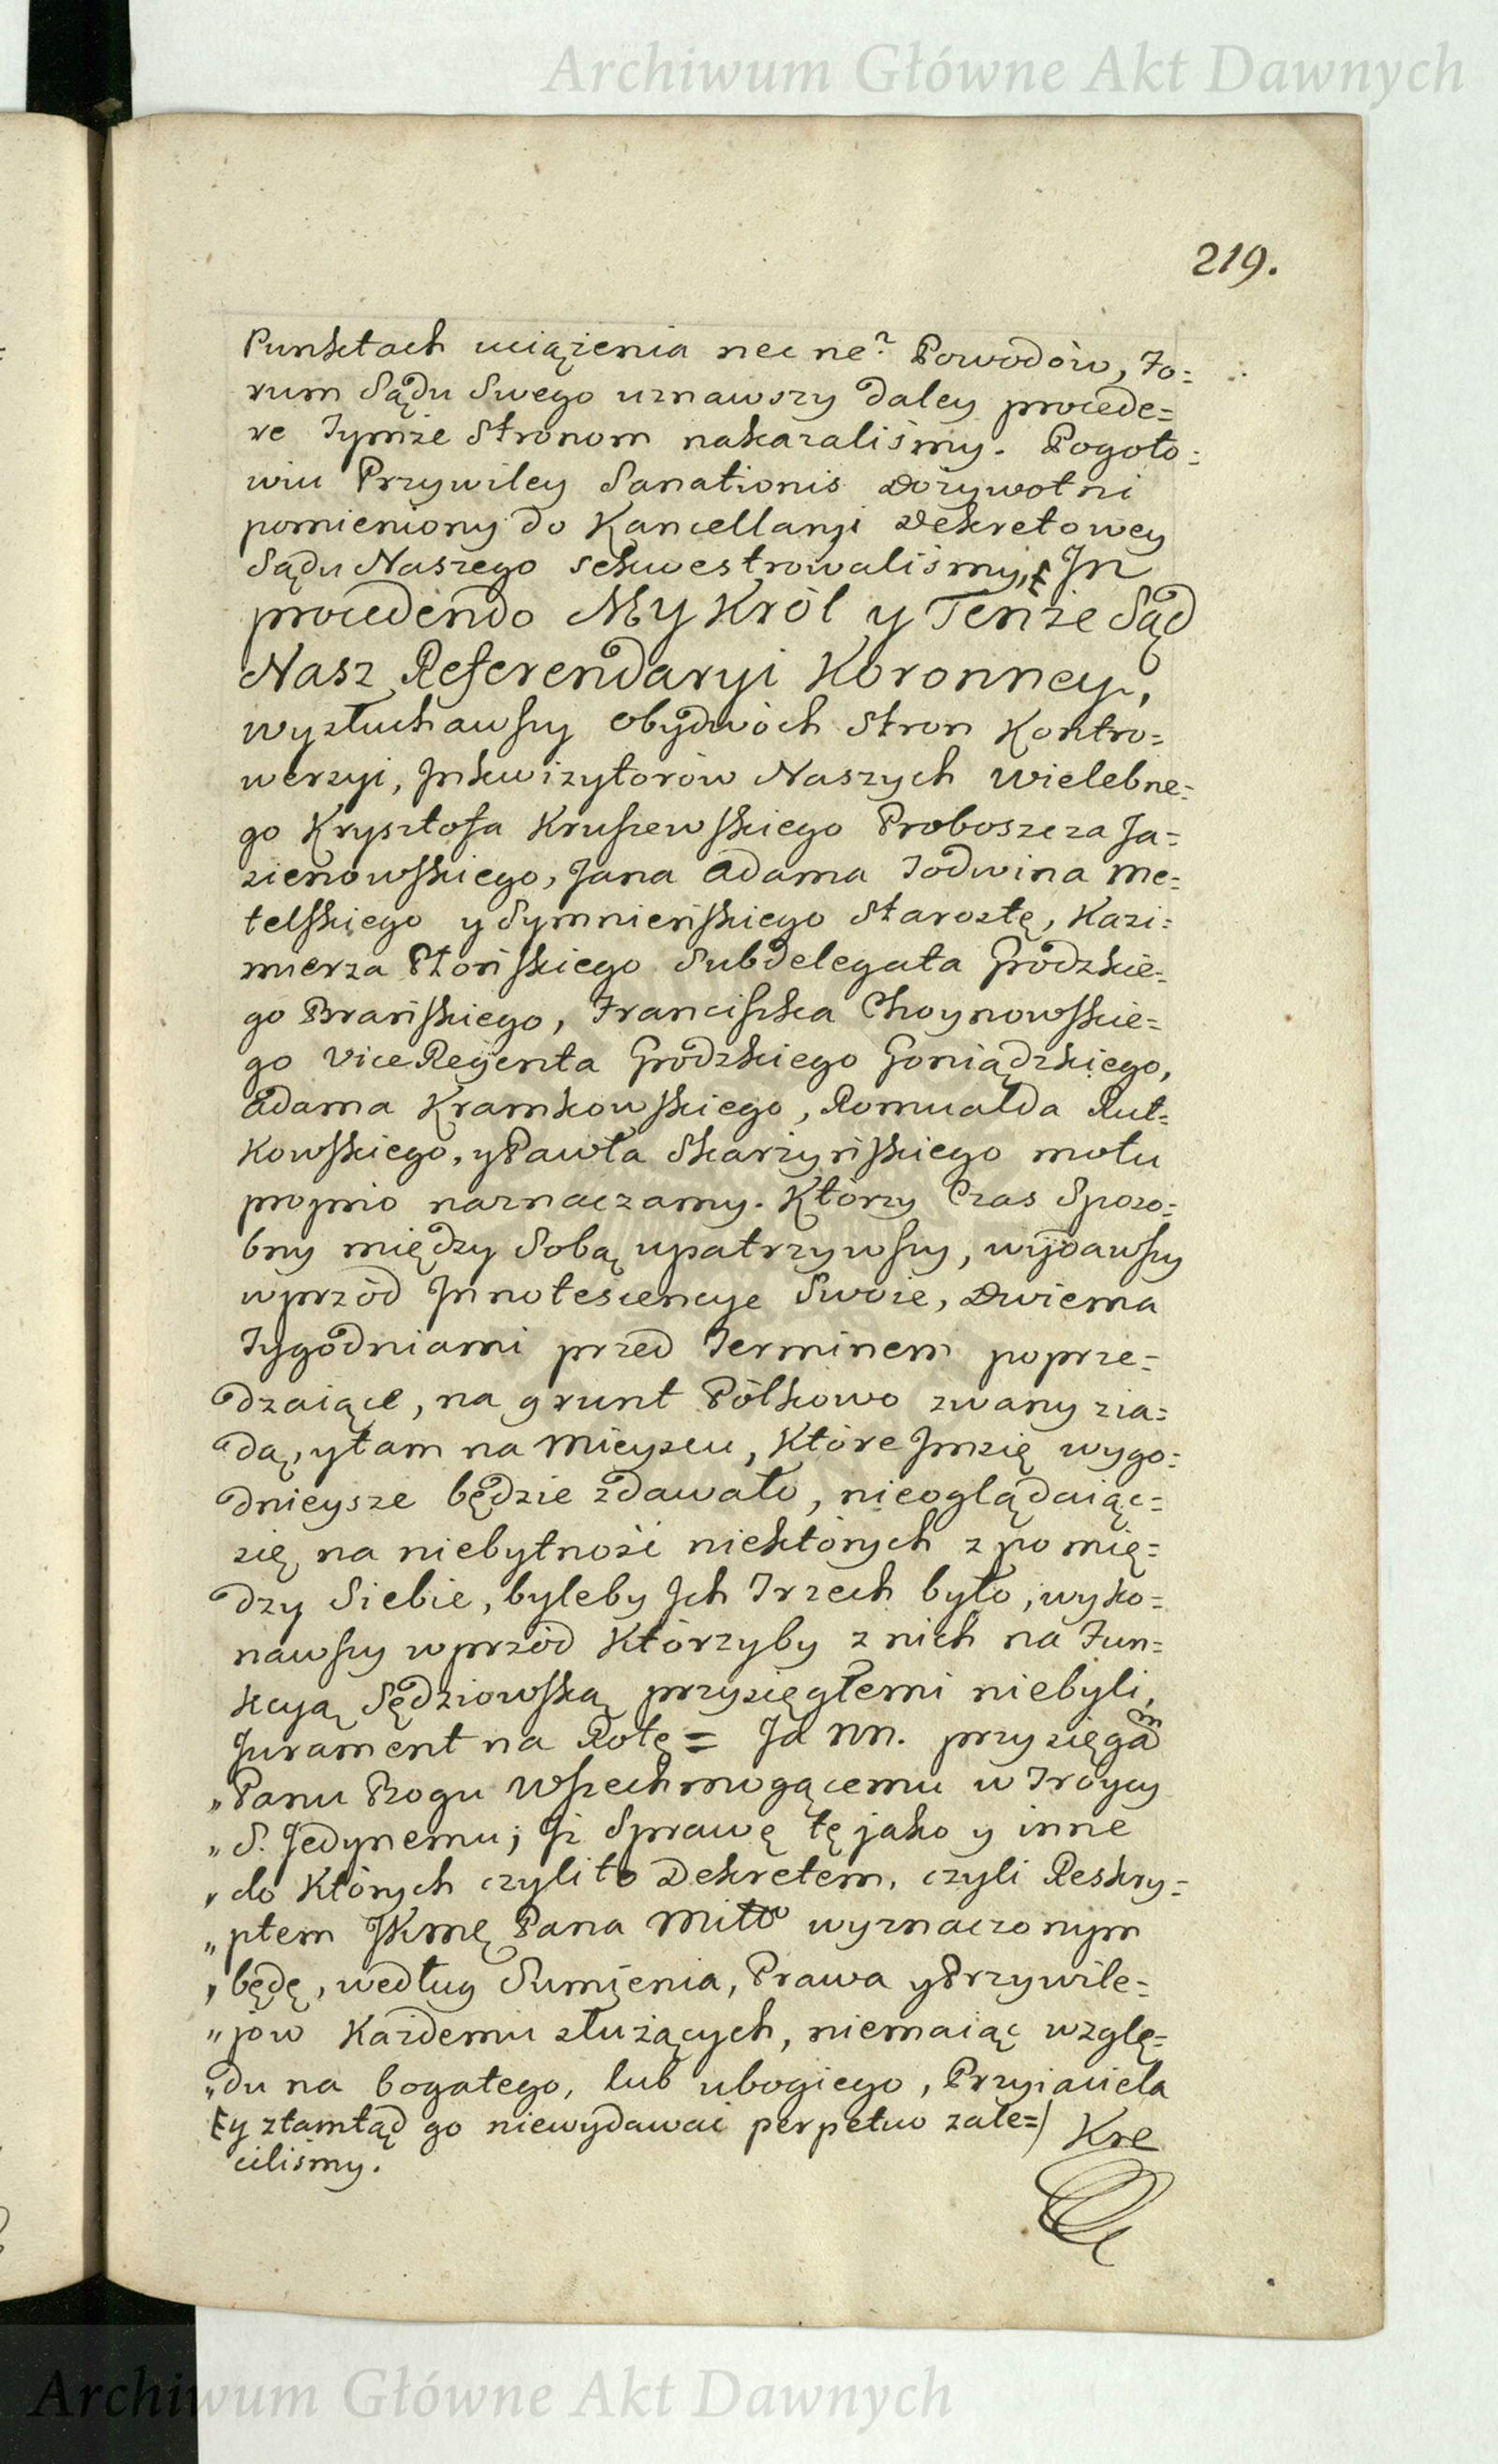 Archiwum Główne Akt Dawnych
219.
Punktach uciążenia nec ne? Powodów, Fo=
rum Sądu Swego uznawszy daley procede=
re Tymże Stronom nakazaliśmy. Pogoto=
wiu Przywiley Sanationis Dożywotni
pomieniony do Kancellaryi Dekretowey
Sądu Naszego sekwestrowaliśmy, In
procedendo My Król y Tenże Sąd
Nasz Referendaryi Koronney,
wysłuchawszy obydwóch Stron Kontro=
wersyi, Inkwizytorów Naszych Wielebne=
go Krysztofa Kruszewskiego Proboszcza Ja=
sienowskiego, Jana Adama Jodwina Me=
telskiego y Symnieńskiego Starostę, Kazi=
mierza Płońskiego Subdelegata Grodzkie=
go Brańskiego, Franciszka Choynowskie=
go ViceRegenta Grodzkiego Goniądzkiego,
Adama Kramkowskiego, Romualda Rut=
kowskiego, y Pawła Skarzyńskiego motu
proprio naznaczamy. Którzy Czas Sposo=
bny między Sobą upatrzywszy, wydawszy
wprzód Innotescencye Swoie, Dwiema
Tygodniami przed Terminem poprze=
dzaiące, na grunt Pólkowo zwany zia=
dą, y tam na Mieyscu, Które Imsię wygo=
dnieysze będzie zdawało, nieoglądaiąc=
się na niebytność niektórych z pomię=
dzy Siebie, byleby Ich Trzech było, wyko=
nawszy wprzód Którzyby z nich na Fun=
kcyą Sędziowską przysięgłemi niebyli,
Jurament na Rotę = Ja NN. przysięgam
„Panu Bogu Wszechmogącemu w Tróycy
„S. Jedynemu; Iż Sprawę tę jako y inne
„do Których czyli to Dekretem, czyli Reskry=
„ptem JKmę Pana Miłło wyznaczonym
„będę, według Sumienia, Prawa y Przywile=
„jow Każdemu służących, niemaiąc wzglę=
„du na bogatego, lub ubogiego, Przyiaciela
y ztamtąd go niewydawać perpetuo zale=) Kre
ciliśmy.
Archiwum Główne Akt Dawnych